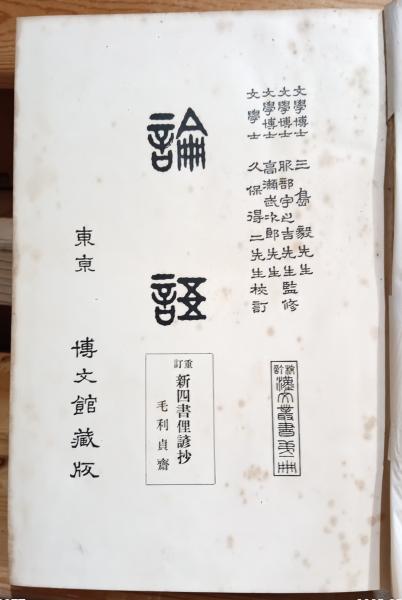 文學博士 三島毅先生
文學博士 服部宇之吉先生監修
文學博士 高瀬武次郎先生
文學士 久保得二先生校訂
漢文叢書
論語
重訂 新四書俚諺抄
毛利貞齋
東京 博文館藏版